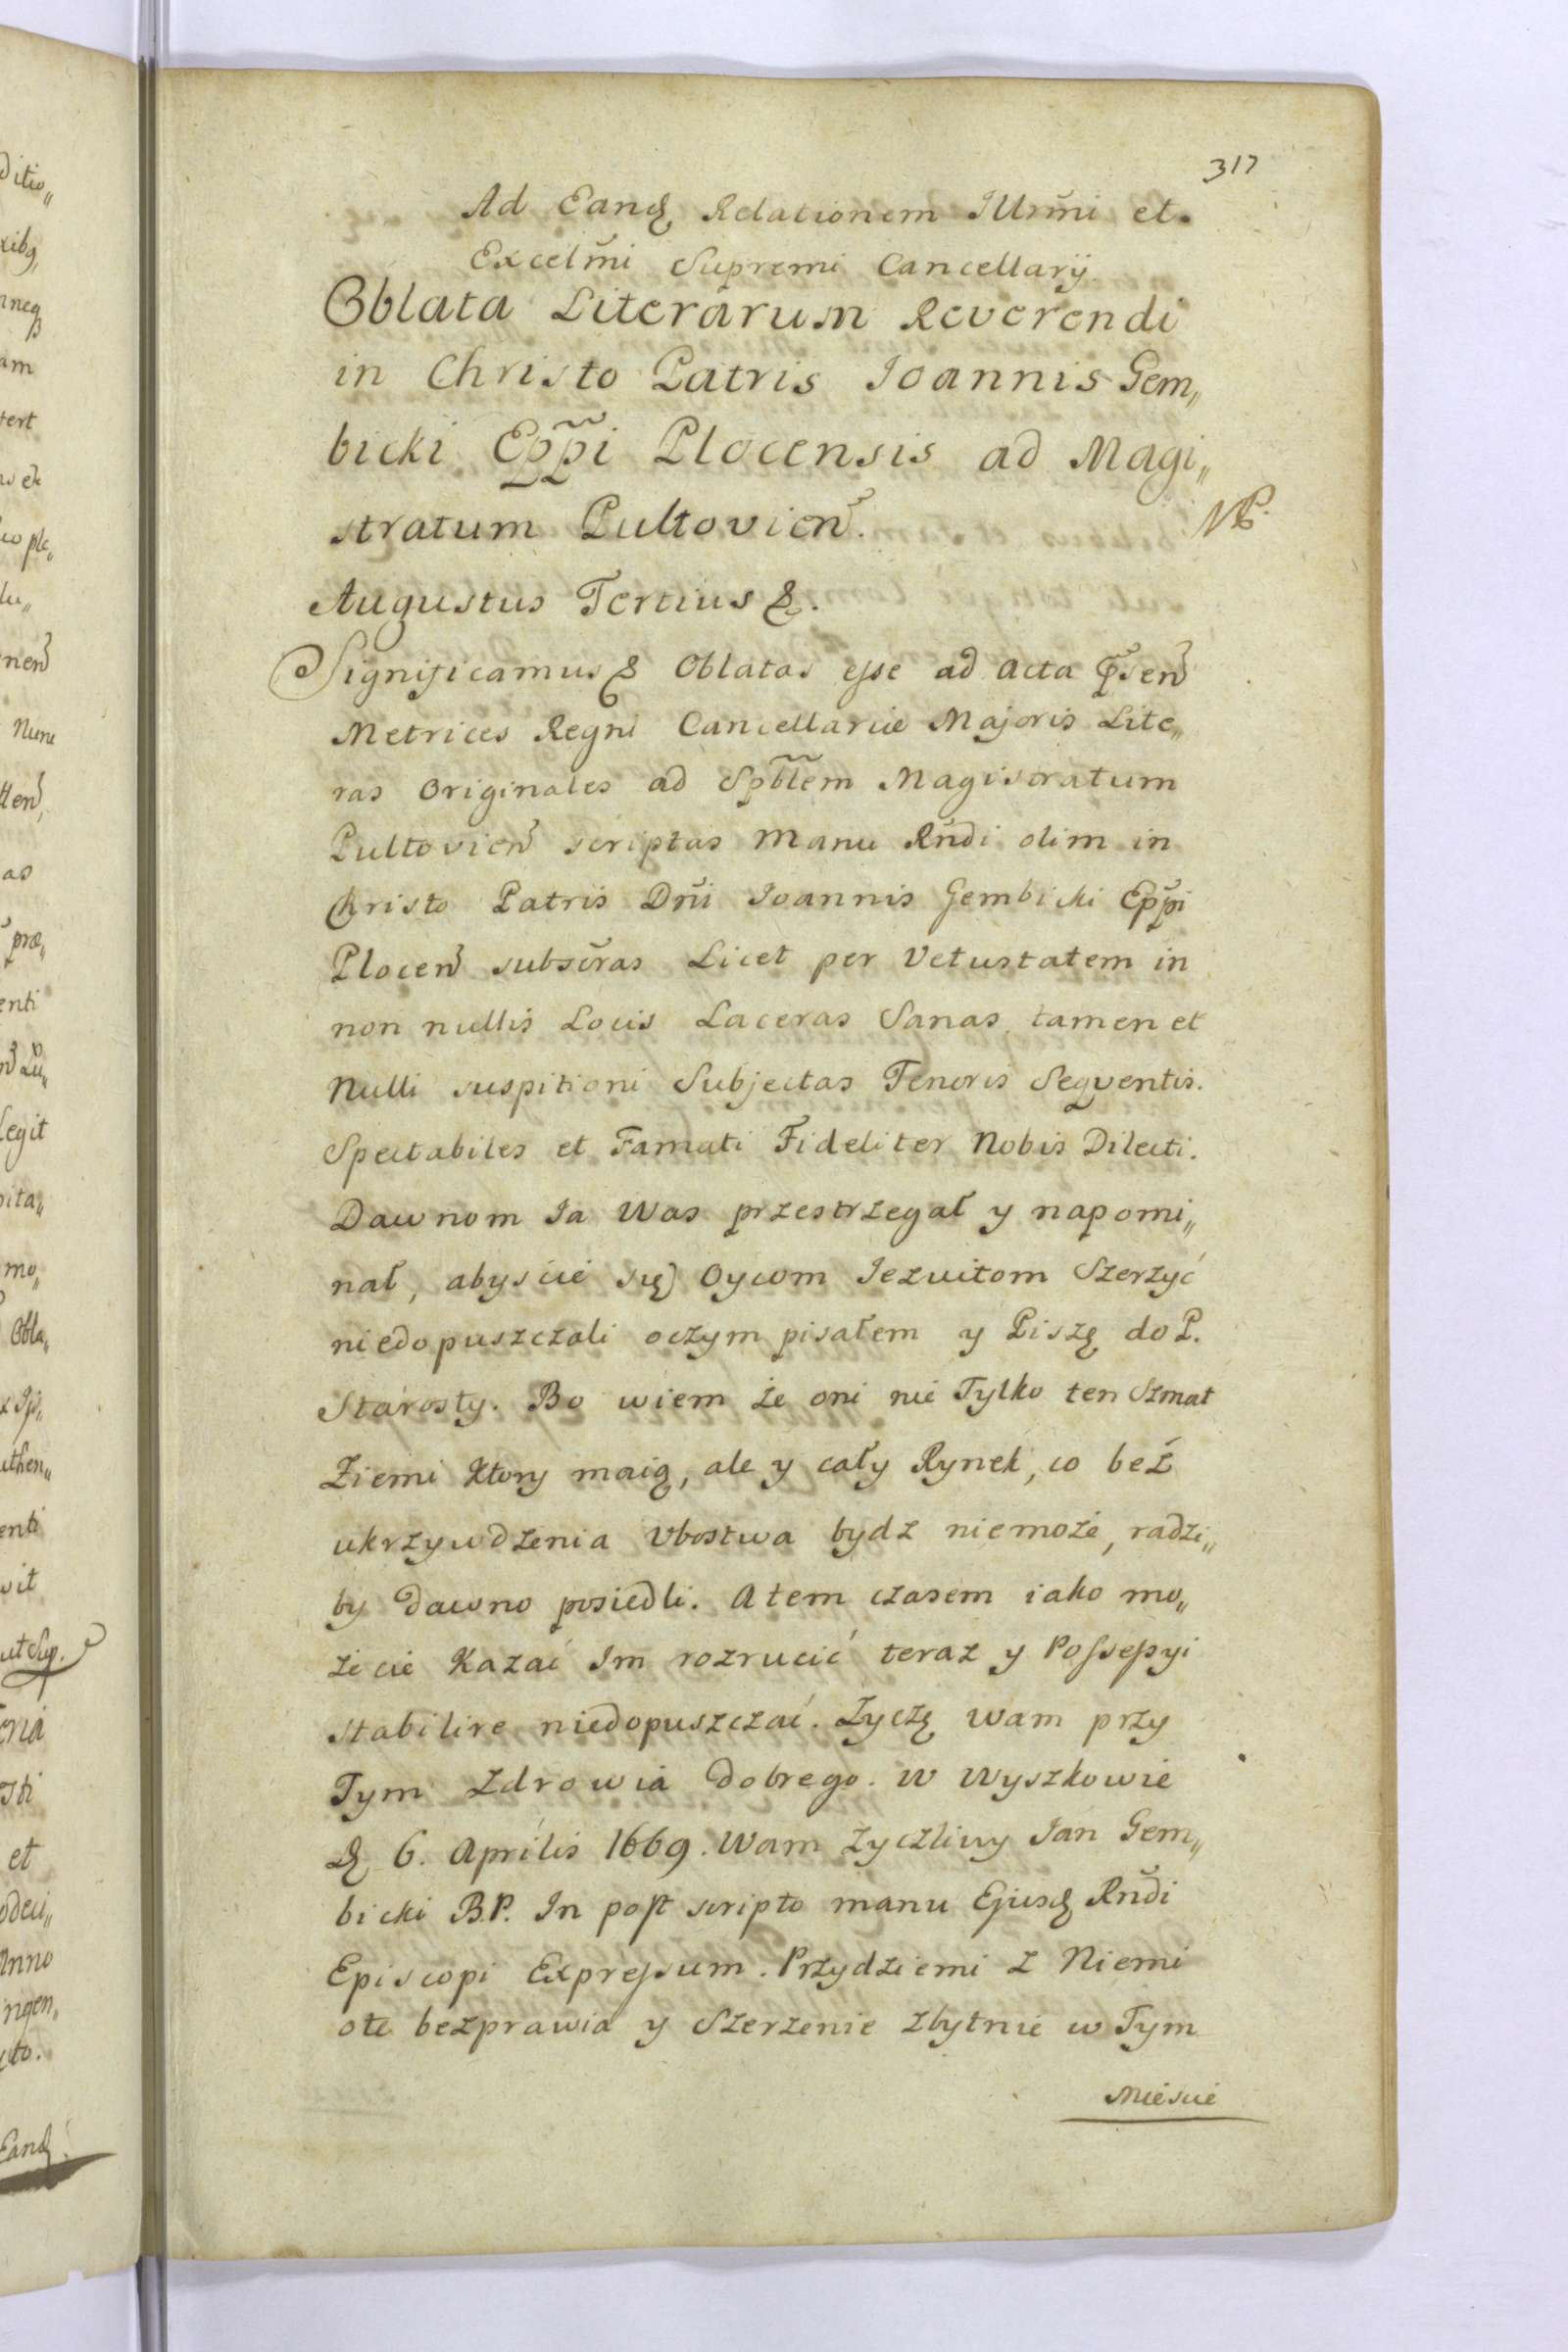 317
Ad Eandꝫ Relationem Illrm̃i et
Excelm̃i Supremi Cancellarÿ
Oblata Literarum Reverendi
in Christo Patris Joannis Gem„
bicki Epp̃i Plocensis ad Magi„
stratum Pultovien̄.
NB.
Augustus Tertius &.
Significamus & Oblatas esse ad Acta p̃sen̄
Metrices Regni Cancellariæ Majoris Lite„
ras Originales ad Spb̃lem Magistratum
Pultovien̄ scriptas Manu Rñdi olim in
Christo Patris Dñi Joannis Gembicki Epp̃i
Plocen̄ subsc̃ras Licet per Vetustatem in
non nullis Locis Laceras Sanas tamen et
Nulli suspitioni Subjectas Tenoris Seqventis.
Spectabiles et Famati Fideliter Nobis Dilecti.
Dawnom Ja Was przestrzegał y napomi„
nał, abyscie się Oycom Jezuitom Szerzyć
niedopuszczali oczym pisałem y Piszę do P.
Starosty. Bo wiem że oni nie Tylko ten Szmat
Ziemi Ktory maią, ale y cały Rynek, co beź
ukrzywdzenia Vbostwa bydz niemoże, radzi„
by dawno posiedli. A tem czasem iako mo„
żecie Kazać Im rozrucić teraz y Possessyi
stabilire niedopuszczać. Życzę wam przy
Tym Zdrowia dobrego. W Wyszkowie
dꝫ 6. Aprilis 1669. Wam życzliwy Jan Gem„
bicki B.P. In post scripto manu Ejusdꝫ Rñdi
Episcopi Expressum. Przydziemi z Niemi
ote bezprawia y Szerzenie zbytnie w Tym
Miescie